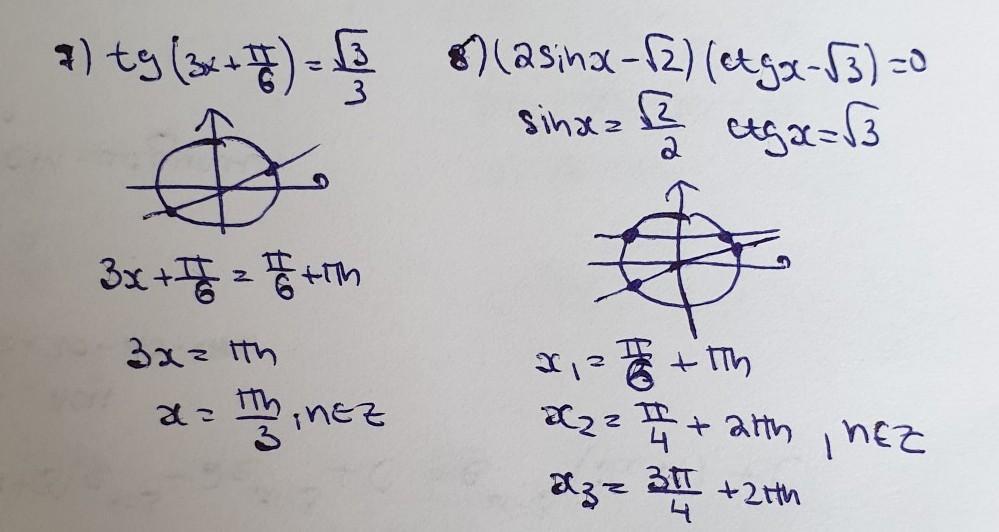 7) tg(3x+π/6)=√3/3
3x+π/6=π/6+πn
3x=πn
x=πn/3, n∈Z
8) (2sinx-√2)(ctgx-√3)=0
sinx=√2/2 ctgx=√3
x₁=π/6+πn
x₂=π/4+2πn, n∈Z
x₃=3π/4+2πn